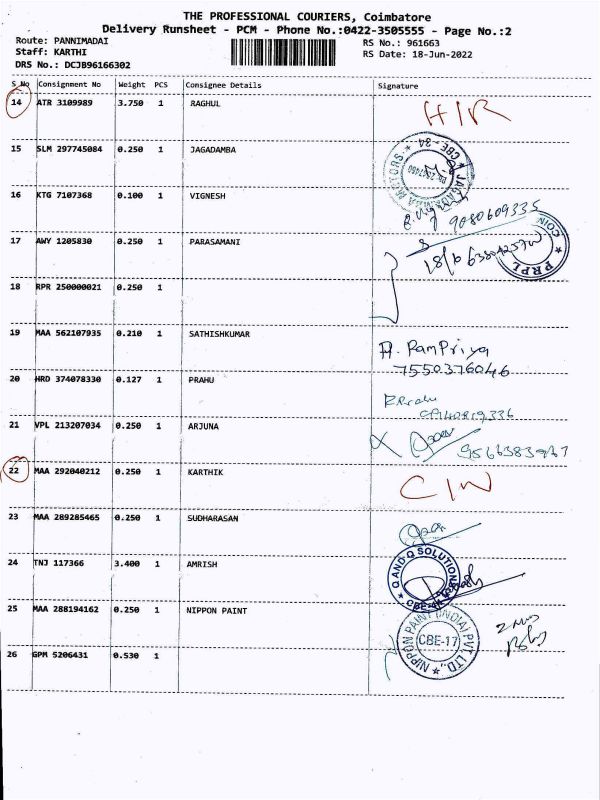 THE PROFESSIONAL COURIERS, Coimbatore
Delivery Runsheet - PCM - Phone No.:0422-3505555 - Page No.:2
Route: PANNIMADAI RS No.: 961663
Staff: KARTHI RS Date: 18-Jun-2022
DRS No.: DCJB96166302
S No Consignment No Weight PCS Consignee Details Signature
14 ATR 3109989 3.750 1 RAGHUL
15 SLM 297745084 0.250 1 JAGADAMBA
CBE-34
16 KTG 7107368 0.100 1 VIGNESH
9080609335
17 AWY 1205830 0.250 1 PARASAMANI
PRPL
18 RPR 250000021 0.250 1
19 MAA 562107935 0.210 1 SATHISHKUMAR
A. RamPriya
7550376046
20 HRD 374078330 0.127 1 PRAHU
21 VPL 213207034 0.250 1 ARJUNA
22 MAA 292040212 0.250 1 KARTHIK
23 MAA 289285465 0.250 1 SUDHARASAN
24 TNJ 117366 3.400 1 AMRISH
Q AND Q SOLUTION
25 MAA 288194162 0.250 1 NIPPON PAINT
NIPPON PAINT (INDIA) PVT. LTD.,
CBE-17
26 GPM 5206431 0.530 1